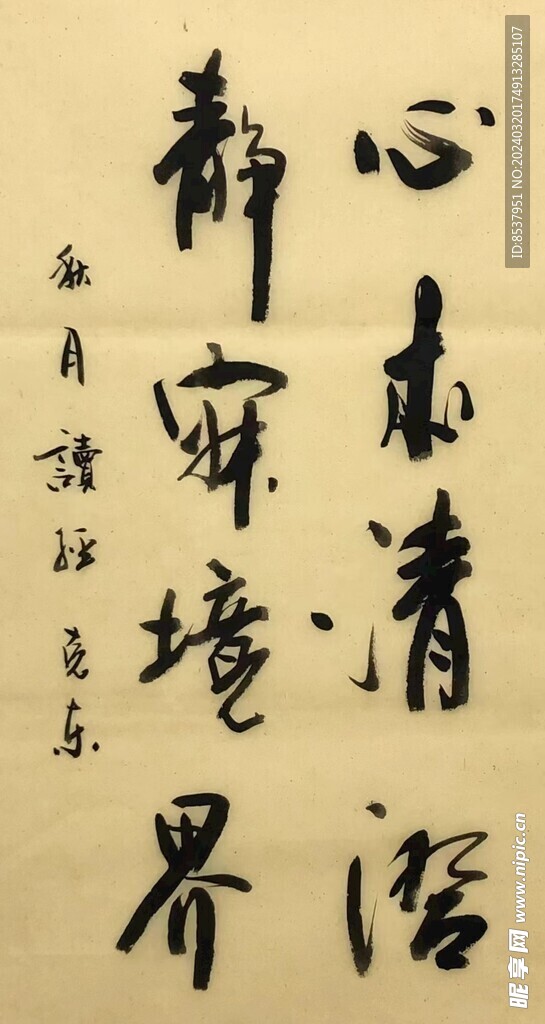 心本清澄
静寂境界
秋月讀經 克东
ID:8537951 NO:20240320174913285107
昵享网 www.nipic.cn